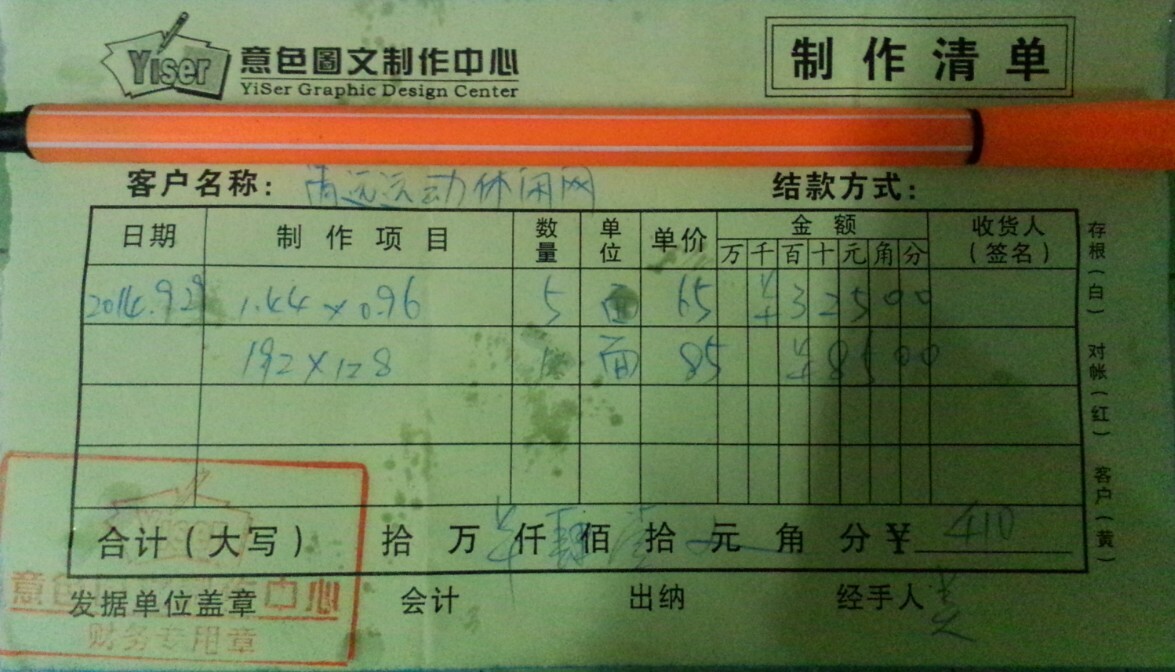 Yiser 意色圖文制作中心 制作清单
YiSer Graphic Design Center
客户名称： 清远运动休闲网 结款方式：
日期 制作项目 数量 单位 单价 金额 收货人（签名）
万 千 百 十 元 角 分
2014.9.29 1.44×0.96 5 面 65 ¥32500
192×128 1 面 85 ¥8500
合计（大写） 拾 万 ¥ 仟 肆 佰 壹 拾 元 角 分 ¥ 410
发据单位盖章 会计 出纳 经手人
存根（白） 对帐（红） 客户（黄）
Yiser
意色 中心
财务专用章